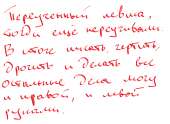 Переученный левша,
годи ещё переучивали.
В итоге писать, чертить,
дрочить и делать все
остальные дела могу
и правой, и левой
руками.